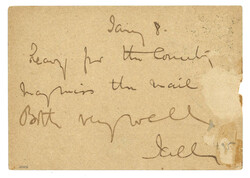 Jany 8.
Leaving for the Comet;
may miss the mail
Both very well